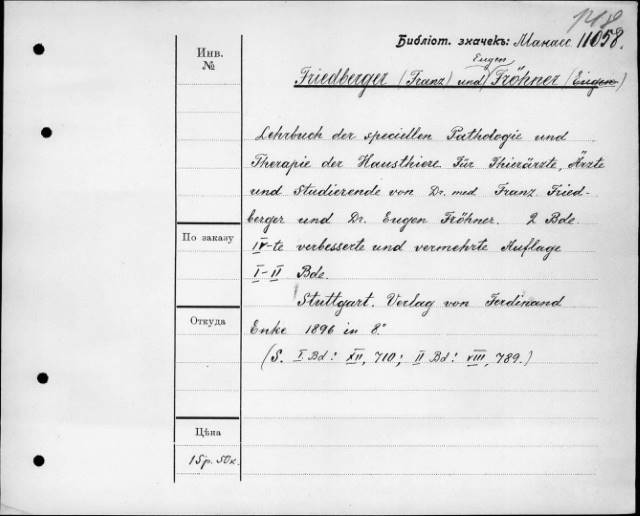 148
Библіот. значекъ: Манасс. 11058.
Инв.
№
Eugen
Friedberger (Franz) und Fröhner (Eugen)
Lehrbuch der speciellen Pathologie und
Therapie der Hausthiere. Für Thierärzte, Ärzte
und Studierende von Dr. med. Franz Fried-
berger und Dr. Eugen Fröhner. 2 Bde.
По заказу
IV-te verbesserte und vermehrte Auflage
I-II Bde.
Stuttgart. Verlag von Ferdinand
Откуда
Enke 1896 in 8.°
(S. I Bd: XII, 710; II Bd: VIII, 789.)
Цѣна
15р. 50к.